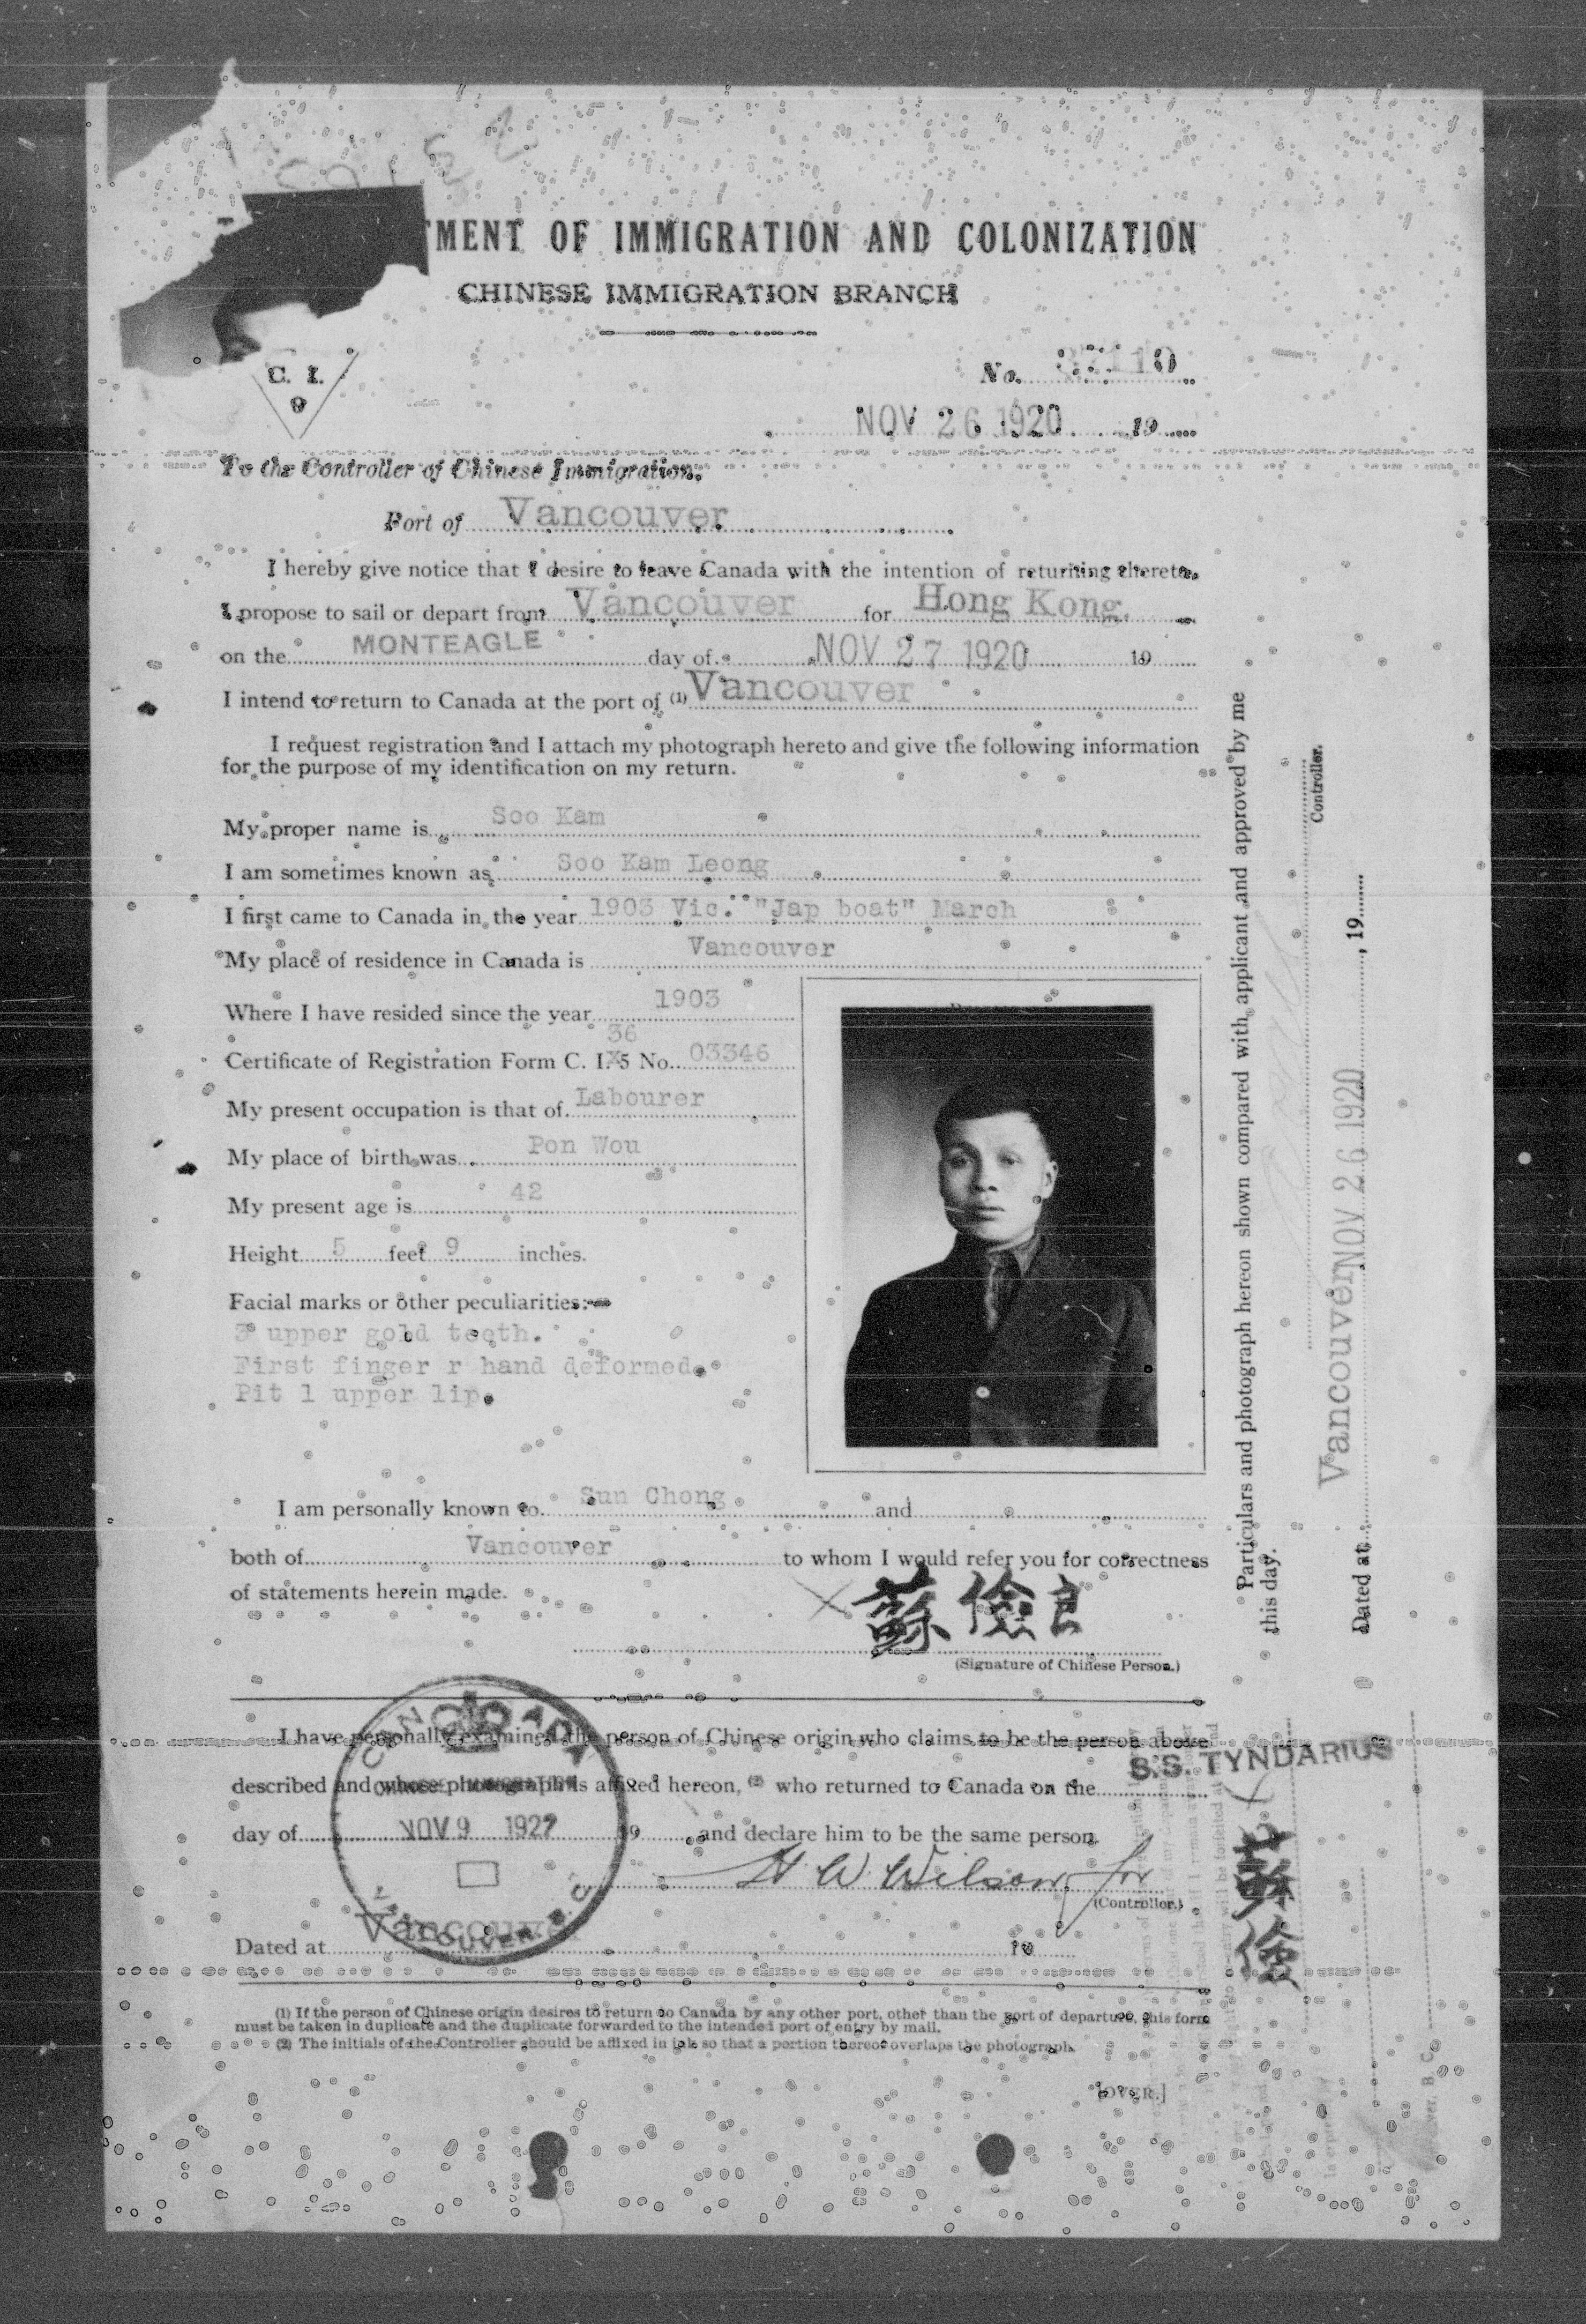 TMENT OF IMMIGRATION AND COLONIZATION
CHINESE IMMIGRATION BRANCH
C. I.
9
No.
NOV 26 1920 19
To the Controller of Chinese Immigration,
Port of Vancouver
I hereby give notice that I desire to leave Canada with the intention of returning thereto.
I propose to sail or depart from Vancouver for Hong Kong.
on the MONTEAGLE day of NOV 27 1920 19
I intend to return to Canada at the port of (1) Vancouver
I request registration and I attach my photograph hereto and give the following information
for the purpose of my identification on my return.
My proper name is Soo Kam
I am sometimes known as Soo Kam Leong
I first came to Canada in the year 1903 Vic. "Jap boat" March
My place of residence in Canada is Vancouver
Where I have resided since the year 1903
36
Certificate of Registration Form C. I. 5 No. 03346
My present occupation is that of Labourer
My place of birth was Pon Wou
My present age is 42
Height 5 feet 9 inches.
Facial marks or other peculiarities:—
3 upper gold teeth.
First finger r hand deformed.
Pit l upper lip.
I am personally known to Sun Chong and
both of Vancouver to whom I would refer you for correctness
of statements herein made.
蘇儉良
(Signature of Chinese Person.)
I have personally examined the person of Chinese origin who claims to be the person above
S.S. TYNDARIUS
described and whose photograph is affixed hereon, (2) who returned to Canada on the
day of NOV 9 1922 19 and declare him to be the same person.
H W Wilson for
(Controller.)
Dated at Vancouver 19
CANADA
VANCOUVER B.C.
(1) If the person of Chinese origin desires to return to Canada by any other port, other than the port of departure, this form
must be taken in duplicate and the duplicate forwarded to the intended port of entry by mail.
(2) The initials of the Controller should be affixed in ink so that a portion thereof overlaps the photograph.
[OVER.]
Particulars and photograph hereon shown compared with applicant and approved by me
this day.
Controller.
Dated at Vancouver NOV 26 1920, 19
蘇儉